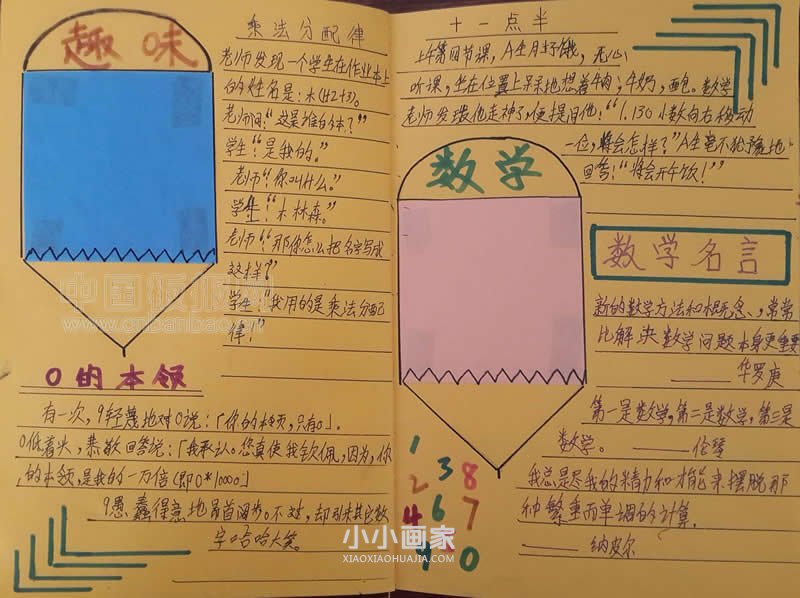 趣味
乘法分配律
老师发现一个学生在作业本上
的姓名是:木(1+2+3)。
老师问:“这是谁的本?”
学生:“是我的。”
老师:“你叫什么。”
学生:“木林森。”
老师:“那你怎么把名字写成
这样?”
学生:“我用的是乘法分配
律!”
中国板报网
www.cnbanbao.cn
0的本领
有一次,9轻蔑地对0说:「你的本领,只有0」。
0低着头,恭敬回答说:「我承认。您真使我钦佩,因为,你
的本领,是我的一万倍(即0*1000」
9愚蠢得意地昂首阔步。不过,却引来其它数
字哈哈大笑。
十一点半
上午第四节课,A生肚子饿,无心
听课,坐在位置上呆呆地想着牛肉,牛奶,面包。数学
老师发现他走神了,便提问他:“1.130小数向右移动
一位,将会怎样?”A生毫不犹豫地
回答:“将会开午饭!”
数学
数学名言
新的数学方法和概念、,常常
比解决数学问题本身更重要
——华罗庚
第一是数学,第二是数学,第三是
数学。——伦琴
我总是尽我的精力和才能来摆脱那
种繁重而单调的计算.
——纳皮尔
1 3 8
2 6 7
4
9 0
小小画家
XIAOXIAOHUAJIA.COM